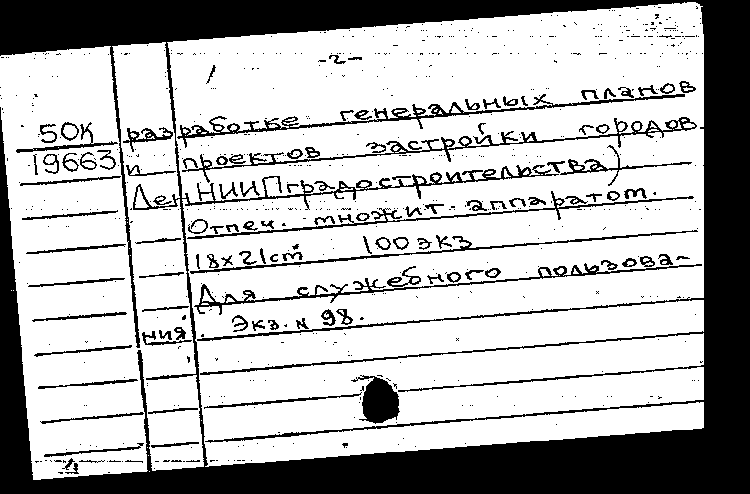 -2-
50К разработке генеральных планов
19663 и проектов застройки городов
ЛенНИИПградостроительства)
Отпеч. множит. аппаратом.
18х21см 100 экз
Для служебного пользова-
ния. Экз. N 98.